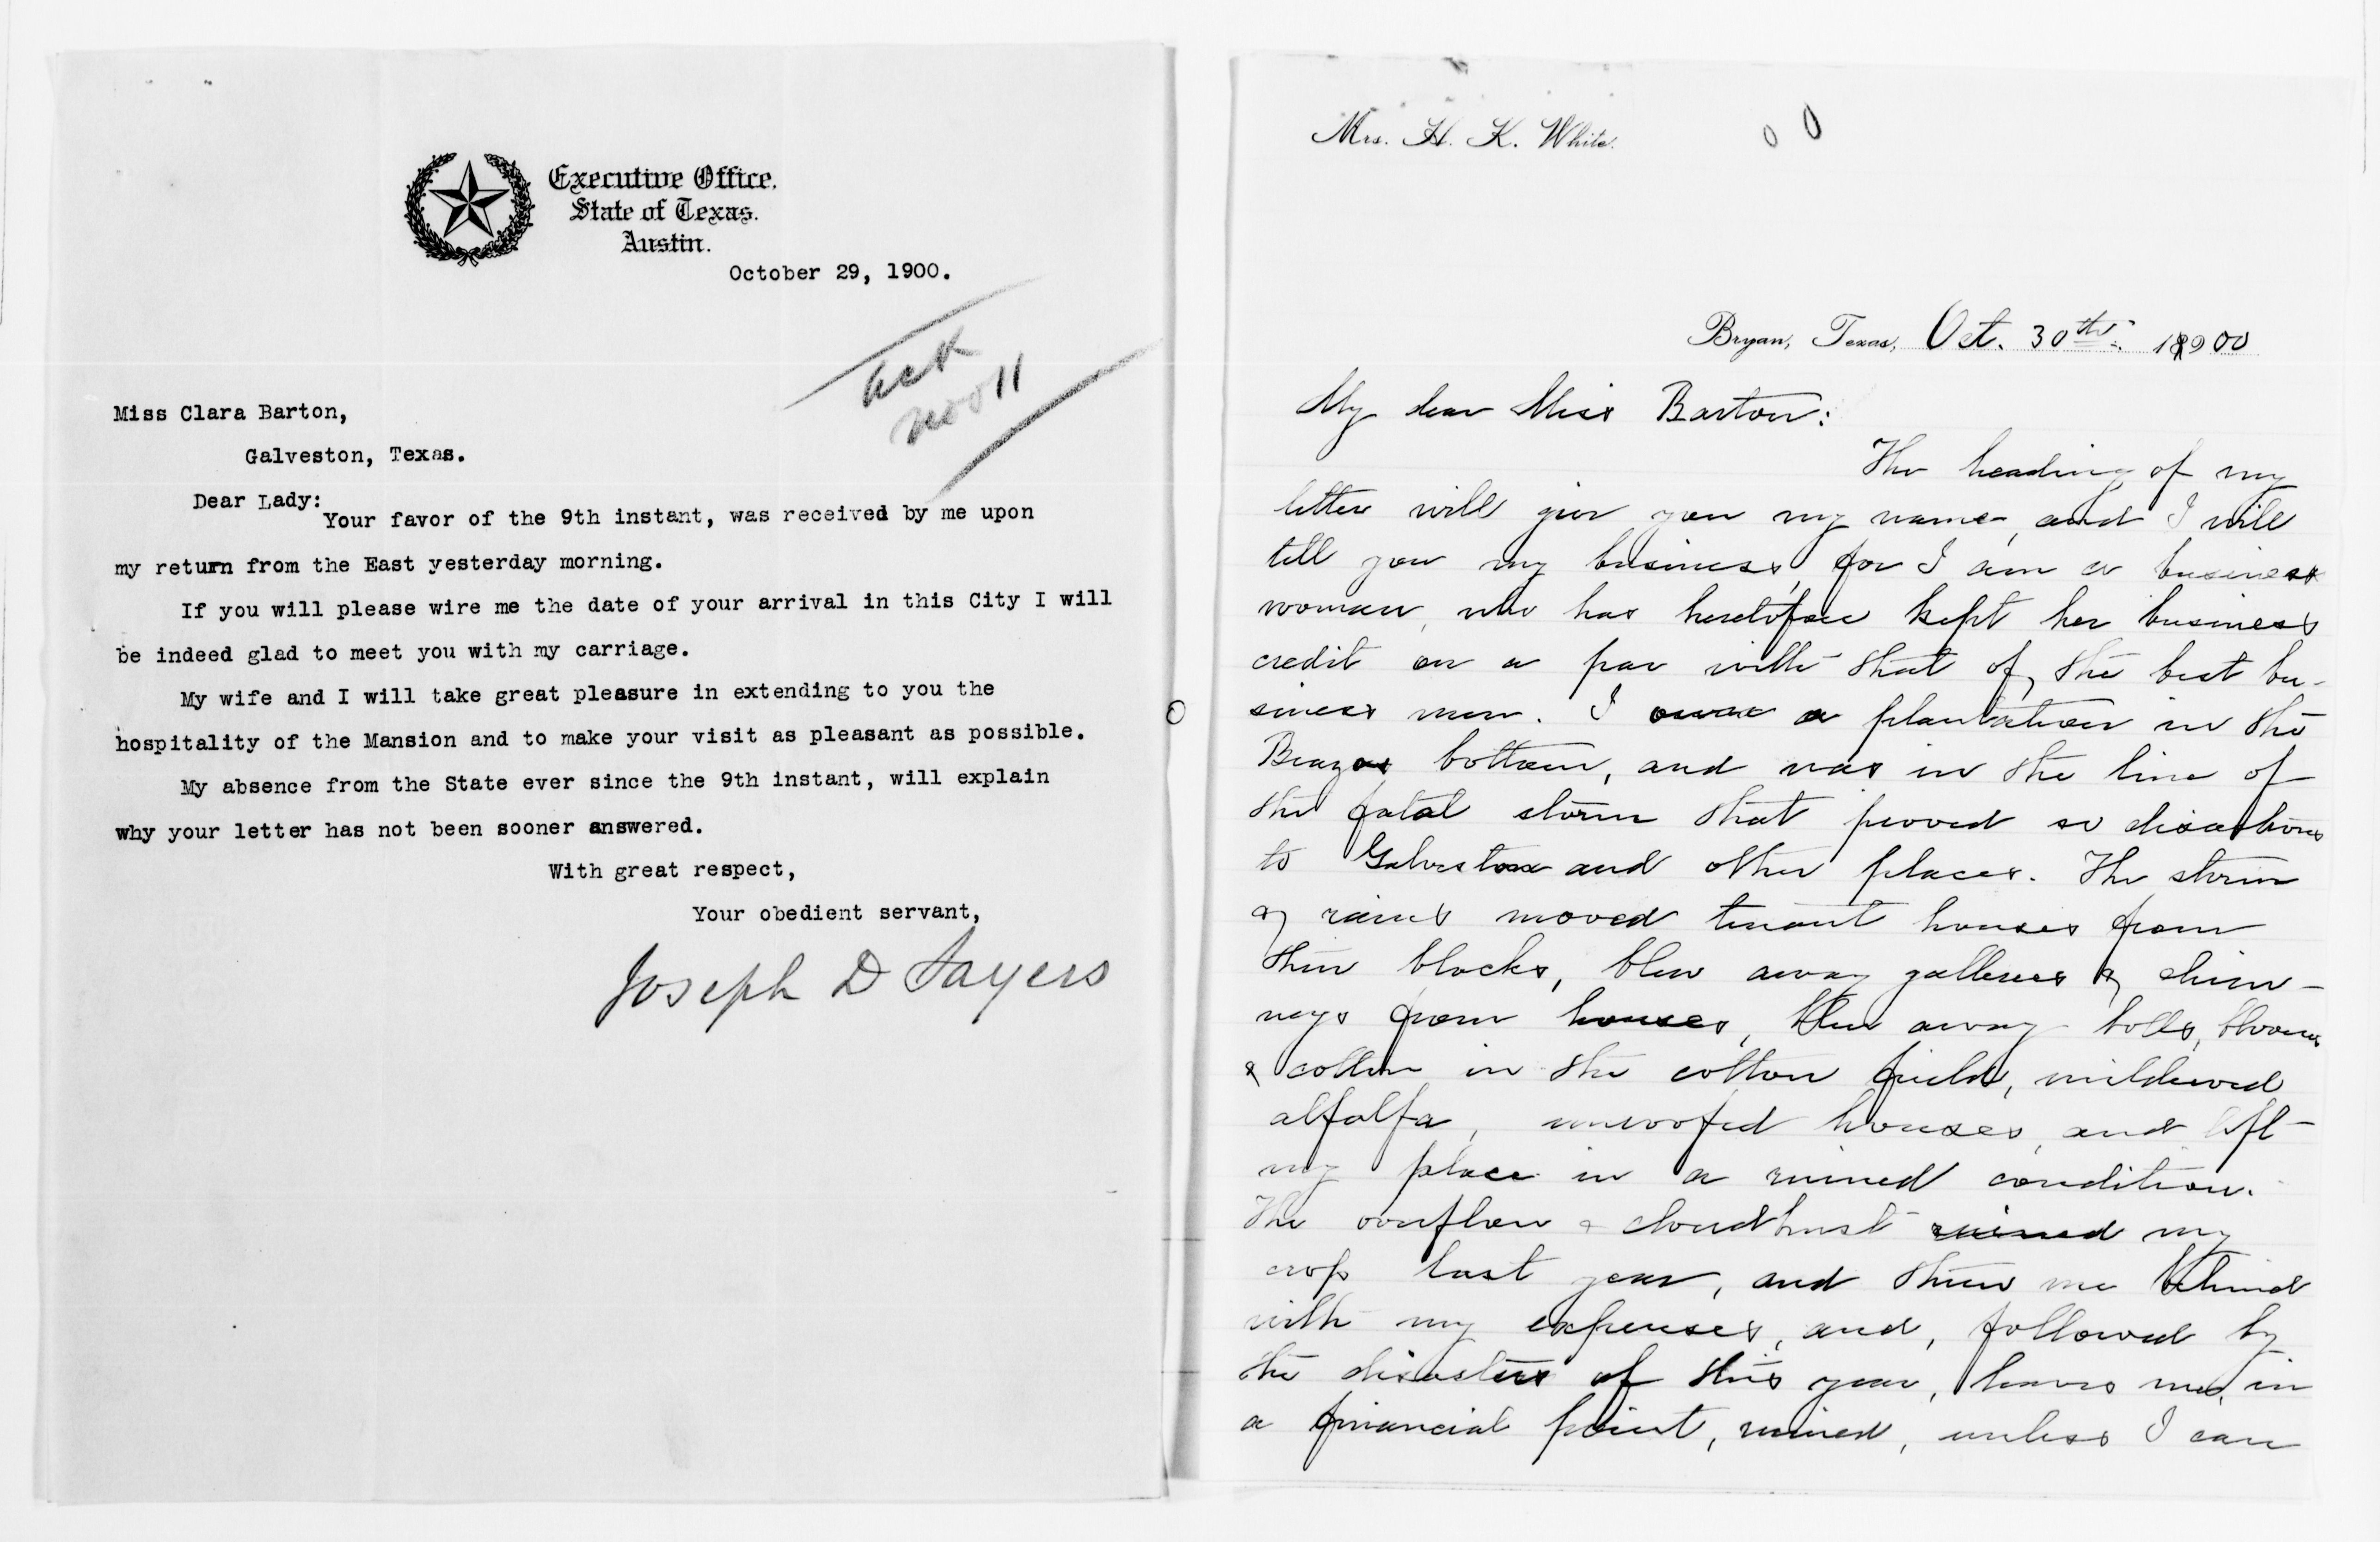 Executive Office.
State of Texas.
Austin.
October 29, 1900.
ack
Nov 11
Miss Clara Barton,
Galveston, Texas.
Dear Lady:
Your favor of the 9th instant, was received by me upon
my return from the East yesterday morning.
If you will please wire me the date of your arrival in this City I will
be indeed glad to meet you with my carriage.
My wife and I will take great pleasure in extending to you the
hospitality of the Mansion and to make your visit as pleasant as possible.
My absence from the State ever since the 9th instant, will explain
why your letter has not been sooner answered.
With great respect,
Your obedient servant,
Joseph D Sayers
Mrs. H. K. White.
Bryan, Texas, Oct. 30th. 1900
My dear Miss Barton:
The heading of my
letter will give you my name, and I will
tell you my business, for I am a business
woman, who has heretofore kept her business
credit on a par with that of the best bu-
siness men. I own a plantation in the
Brazos bottom, and was in the line of
the fatal storm that proved so disastrous
to Galveston and other places. The storm
& rains moved tenant houses from
their blocks, blew away galleries & chim-
neys from houses, blew away bolls, blooms
& cotton in the cotton field, mildewed
alfalfa, unroofed houses, and left
my place in a ruined condition.
The overflow & cloudburst ruined my
crop last year, and threw me behind
with my expenses, and, followed by
the disasters of this year, leaves me, in
a financial point, ruined, unless I can